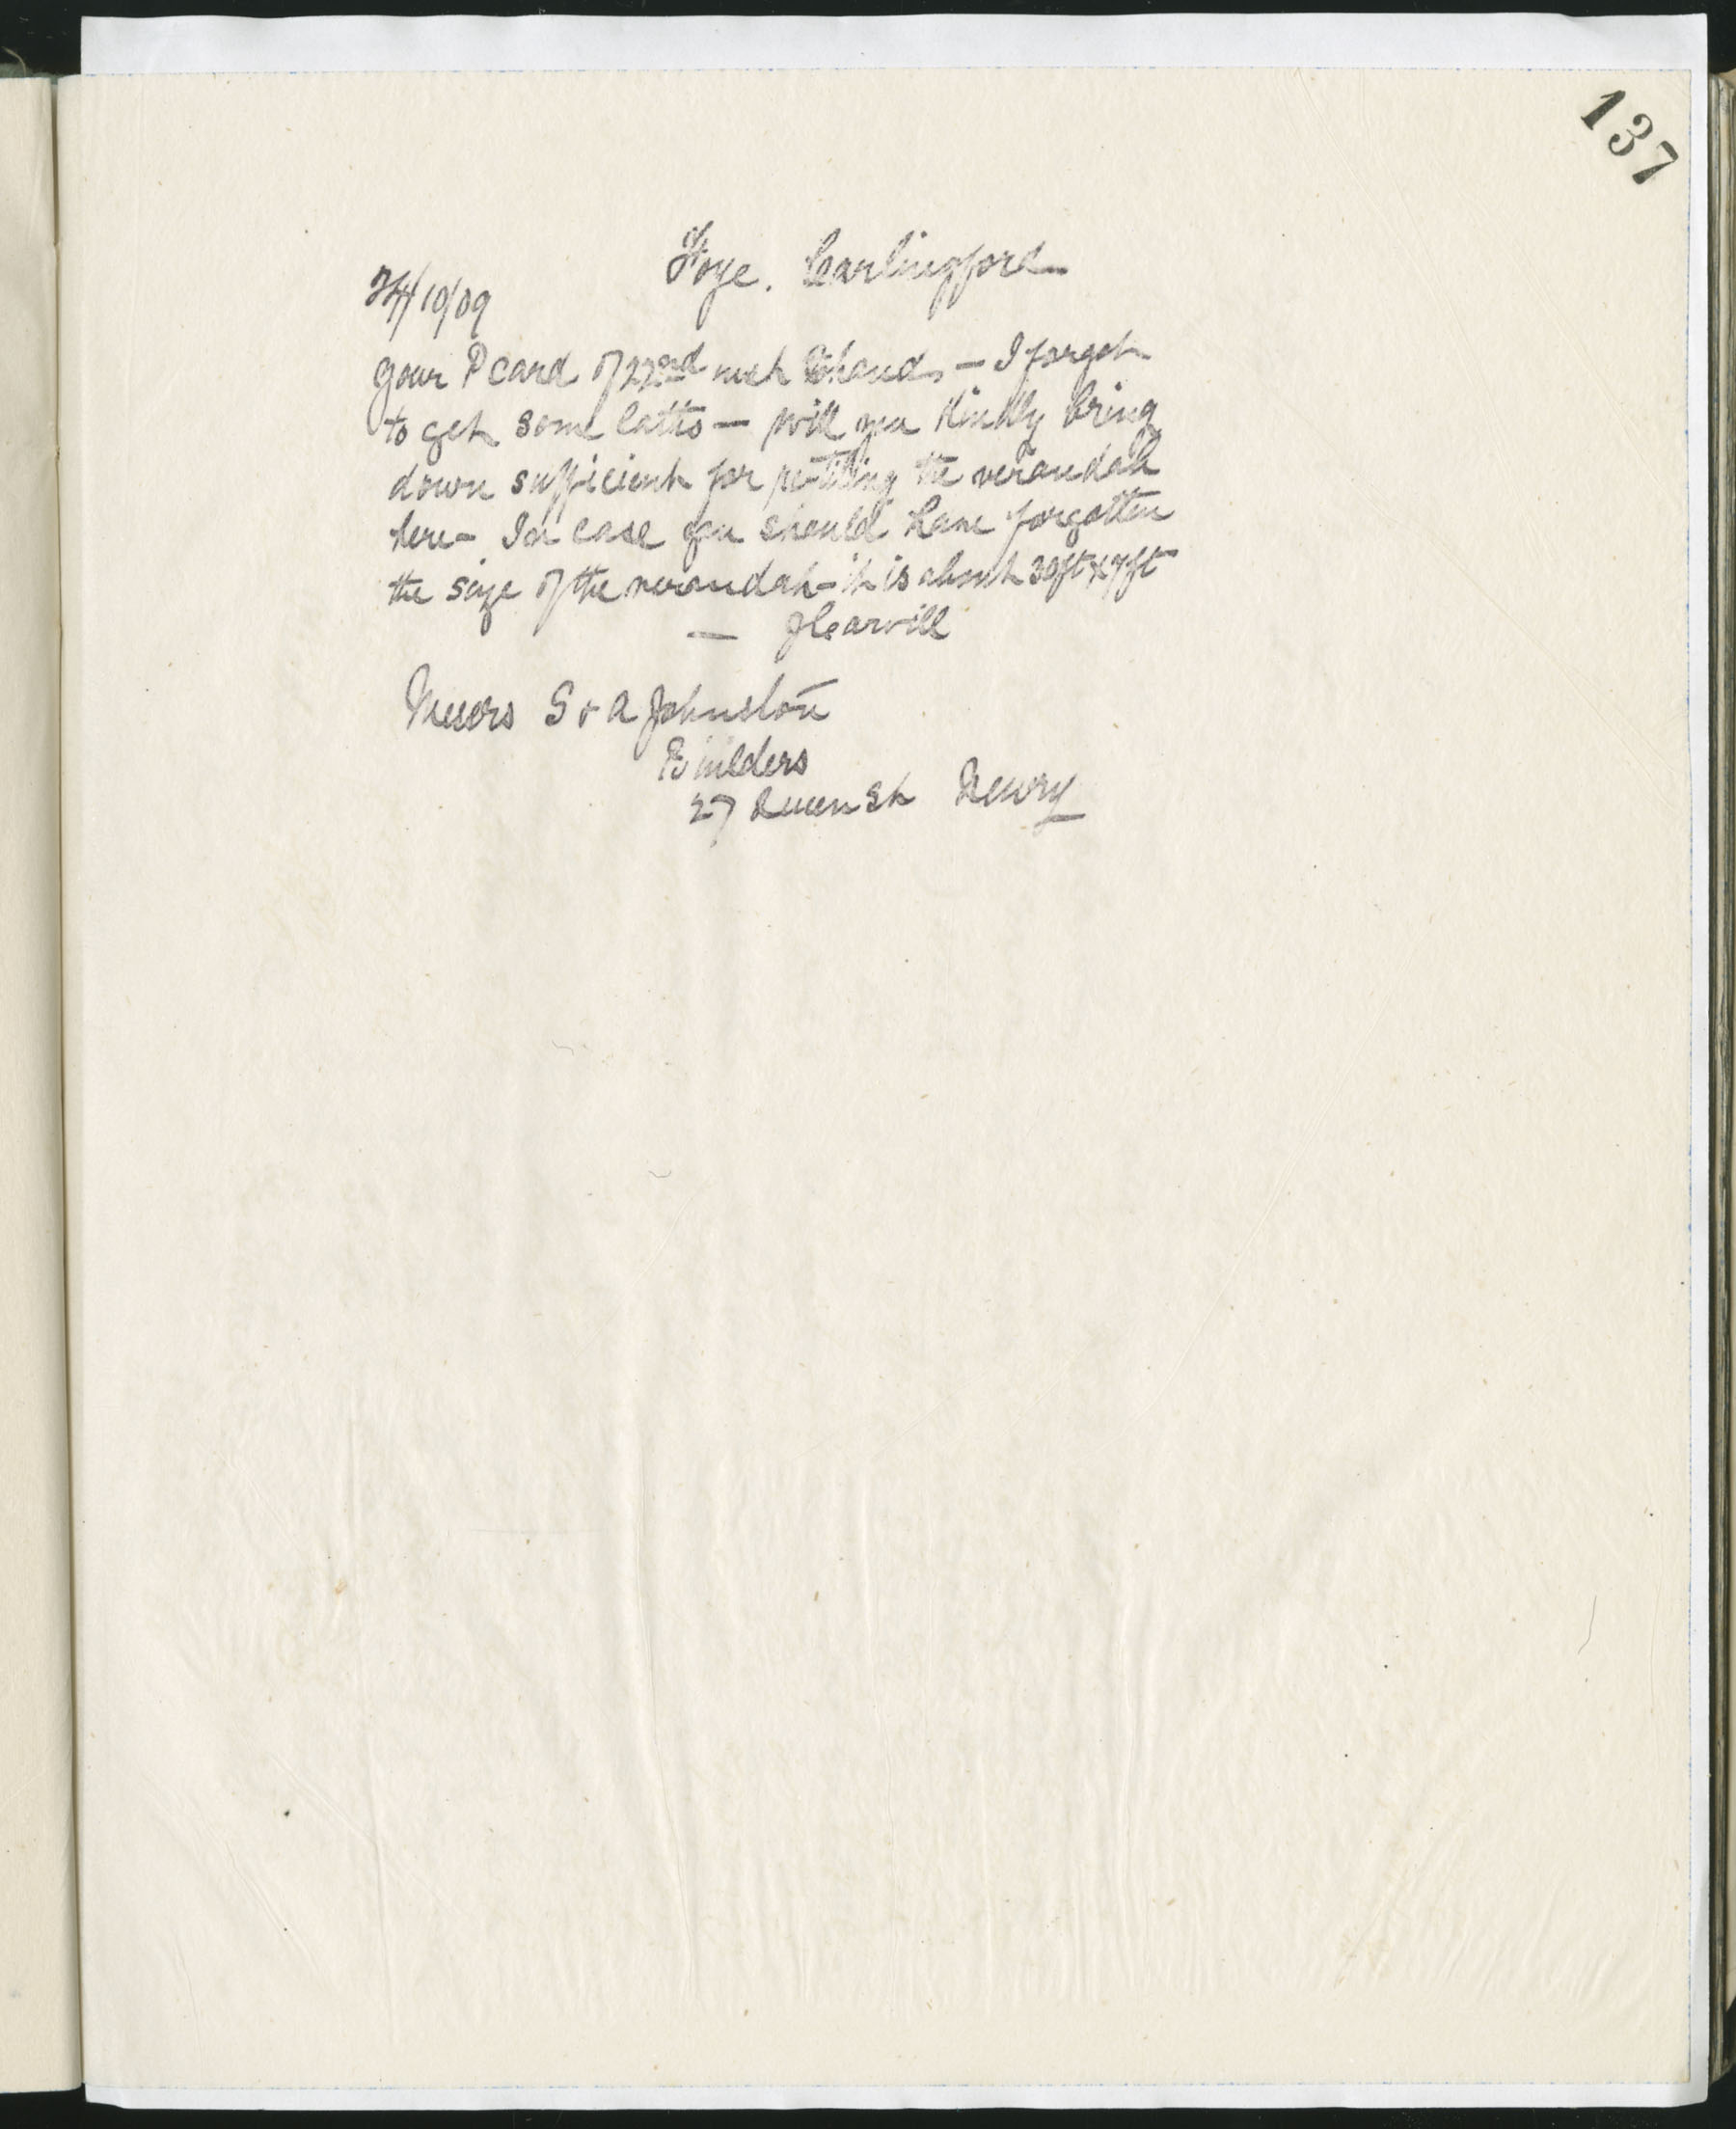 137
Foye. Carlingford
24/10/09
Your P card of 22nd rec'd to hand, - I forgot
to get some latts - will you kindly bring
down sufficient for re-tiling the verandah
here - In case you should have forgotten
the size of the verandah - it is about 30ft x 7ft
— J Carvill
Messrs S & A Johnston
Builders
27 Queen St Newry